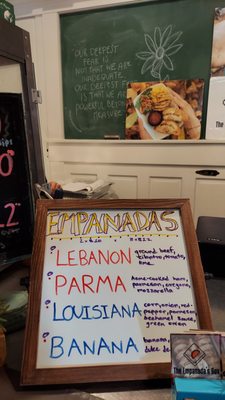 OUR DEEPEST
FEAR IS
NOT THAT WE ARE
INADEQUATE.
OUR DEEPEST F
IS THAT WE AR
POWERFUL BEYON
MEASURE
EMPANADAS
LEBANON ground beef,
cilantro, tomato,
lime
PARMA home-cooked ham,
parmesan, oregano,
mozzarella
LOUISIANA corn, onion, red-
pepper, parmesan,
bechamel sauce,
green onion
BANANA banana,
dulce de
The Empanada's Box